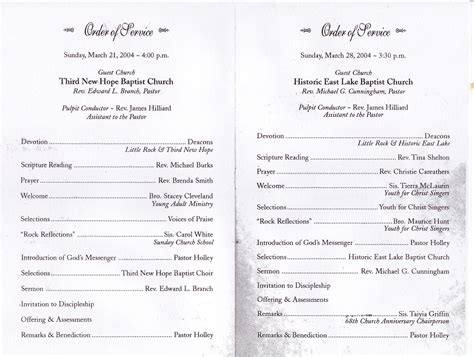 Order of Service
Sunday, March 21, 2004 – 4:00 p.m.
Guest Church
Third New Hope Baptist Church
Rev. Edward L. Branch, Pastor
Pulpit Conductor ~ Rev. James Hilliard
Assistant to the Pastor
Devotion Deacons
Little Rock & Third New Hope
Scripture Reading Rev. Michael Burks
Prayer Rev. Brenda Smith
Welcome Bro. Stacey Cleveland
Young Adult Ministry
Selections Voices of Praise
“Rock Reflections” Sis. Carol White
Sunday Church School
Introduction of God's Messenger Pastor Holley
Selections Third New Hope Baptist Choir
Sermon Rev. Edward L. Branch
Invitation to Discipleship
Offering & Assessments
Remarks & Benediction Pastor Holley
Order of Service
Sunday, March 28, 2004 – 3:30 p.m.
Guest Church
Historic East Lake Baptist Church
Rev. Michael G. Cunningham, Pastor
Pulpit Conductor ~ Rev. James Hilliard
Assistant to the Pastor
Devotion Deacons
Little Rock & Historic East Lake
Scripture Reading Rev. Tina Shelton
Prayer Rev. Christie Careathers
Welcome Sis. Tierra McLaurin
Youth for Christ Singers
Selections Youth for Christ Singers
“Rock Reflections” Bro. Maurice Hunt
Youth for Christ Singers
Introduction of God's Messenger Pastor Holley
Selections Historic East Lake Baptist Church
Sermon Rev. Michael G. Cunningham
Invitation to Discipleship
Offering & Assessments
Remarks & Benediction Sis. Taiyia Griffin
68th Church Anniversary Chairperson
Pastor Holley